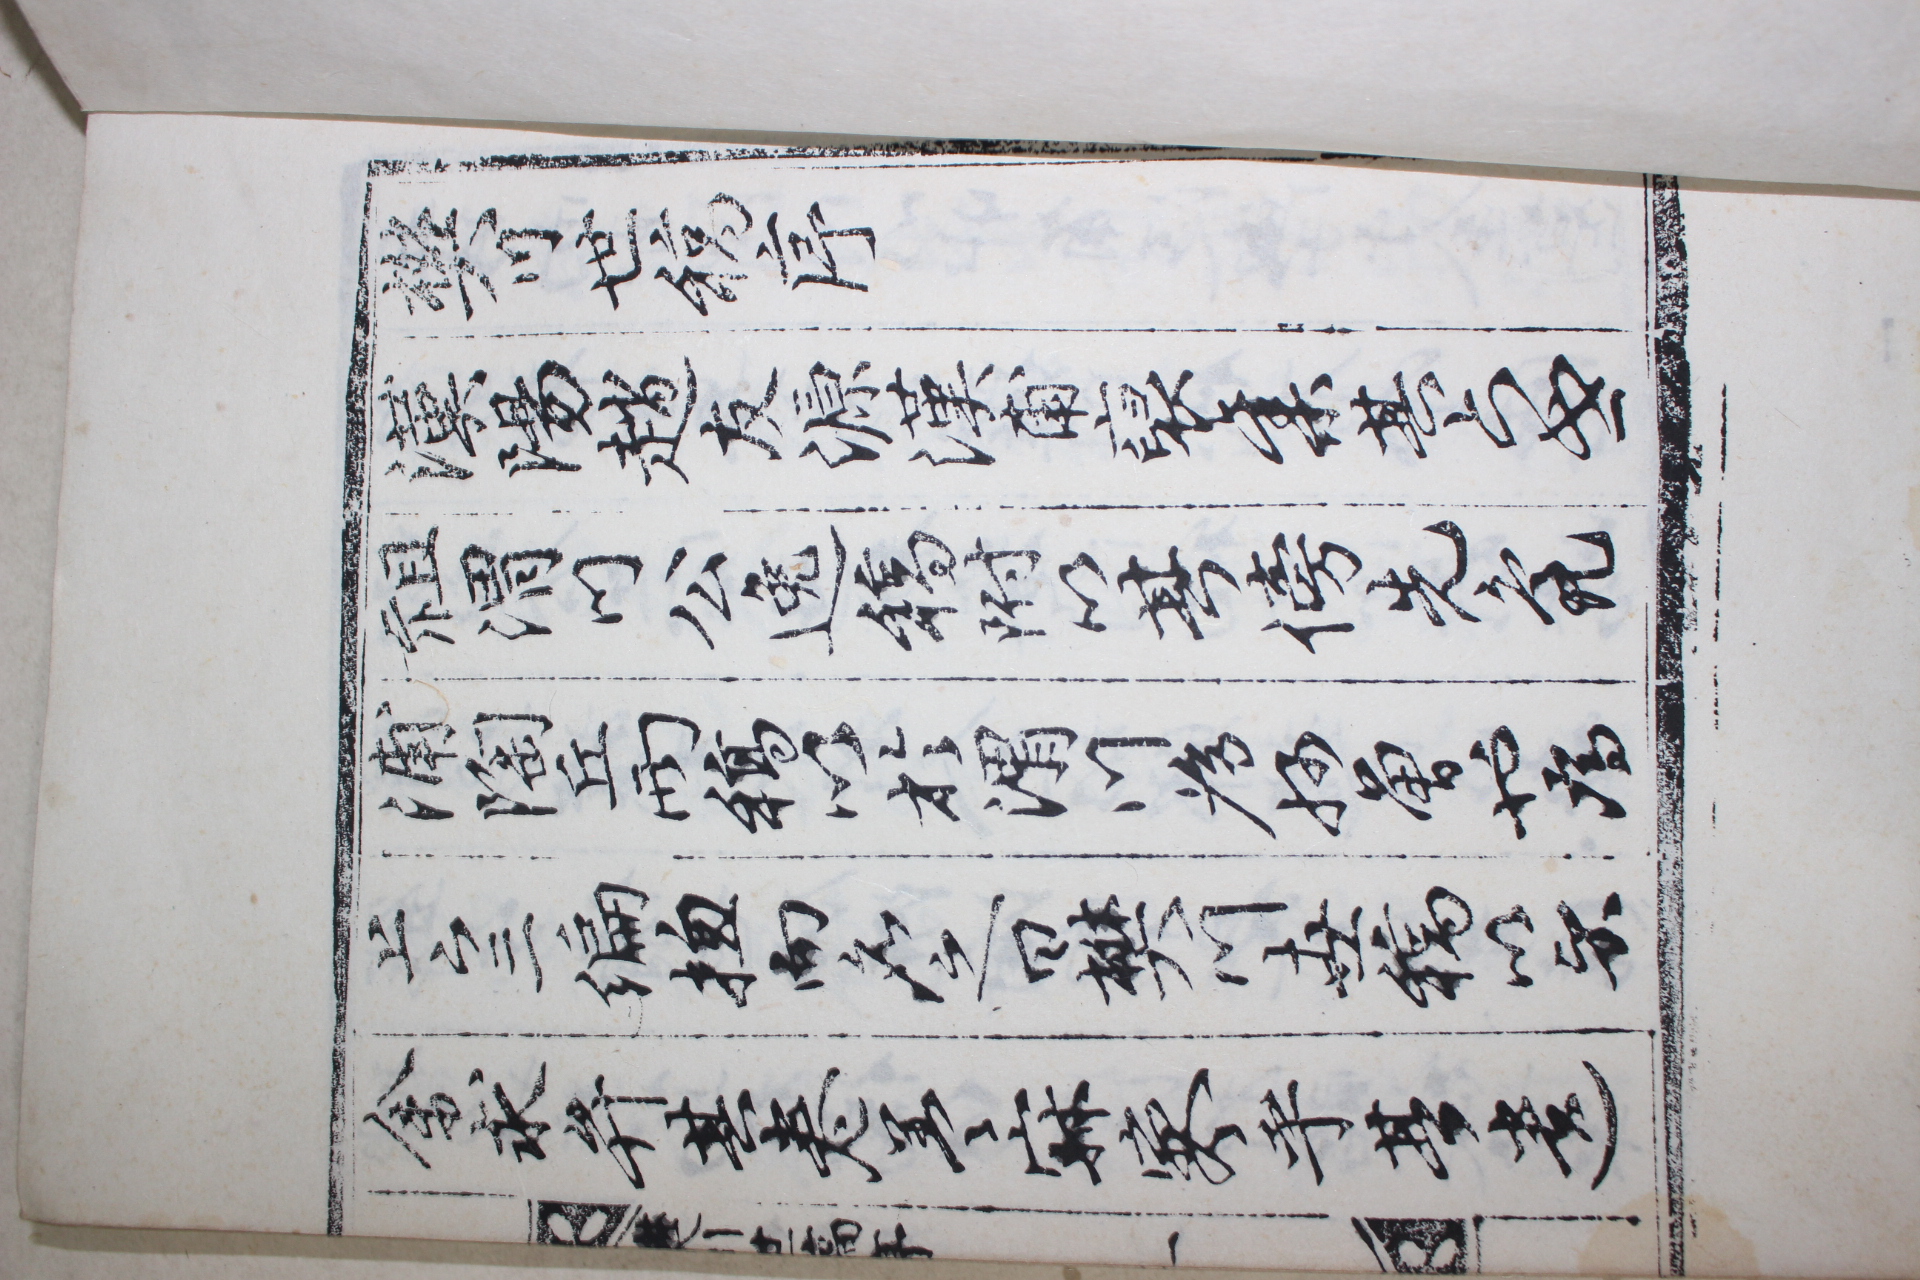 樊川世稿序
漢陽趙友源漢甫裒集其六世
祖渭川公逸稿附以其傍先龜
浦陶丘兩稿以於渭川為姪曾也為
上下三編揔而名之曰樊川世稿以示
余求弁其卷寂寥乎其遺
樊川世稿序
一